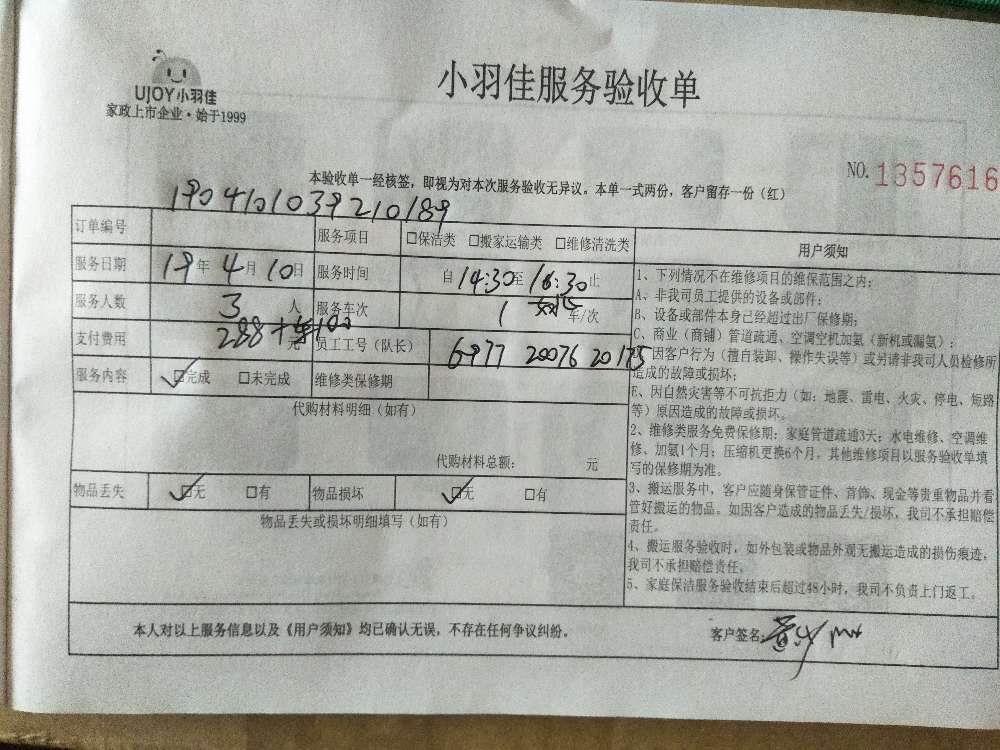 UJOY小羽佳
家政上市企业·始于1999
小羽佳服务验收单
NO.1357616
本验收单一经核签，即视为对本次服务验收无异议。本单一式两份，客户留存一份（红）
190410103921 0189
订单编号 服务项目 □保洁类 □搬家运输类 □维修清洗类
服务日期 19年4月10日 服务时间 自14:30至16:30止
服务人数 3人 服务车次 1 车/次
支付费用 288+ 100 元 员工工号（队长） 6977 20076 20175
服务内容 ✓□完成 □未完成 维修类保修期
代购材料明细（如有）
代购材料总额： 元
物品丢失 ✓□无 □有 物品损坏 ✓□无 □有
物品丢失或损坏明细填写（如有）
用户须知
1、下列情况不在维修项目的维保范围之内：
A、非我司员工提供的设备或部件；
B、设备或部件本身已经超过出厂保修期；
C、商业（商铺）管道疏通、空调空机加氨（新机或漏氨）；
因客户行为（擅自装卸、操作失误等）或另请非我司人员检修所
造成的故障或损坏；
E、因自然灾害等不可抗拒力（如：地震、雷电、火灾、停电、短路
等）原因造成的故障或损坏。
2、维修类服务免费保修期：家庭管道疏通3天；水电维修、空调维
修、加氨1个月；压缩机更换6个月，其他维修项目以服务验收单填
写的保修期为准。
3、搬运服务中，客户应随身保管证件、首饰、现金等贵重物品并看
管好搬运的物品。如因客户造成的物品丢失/损坏，我司不承担赔偿
责任。
4、搬运服务验收时，如外包装或物品外观无搬运造成的损伤痕迹，
我司不承担赔偿责任。
5、家庭保洁服务验收结束后超过48小时，我司不负责上门返工。
本人对以上服务信息以及《用户须知》均已确认无误，不存在任何争议纠纷。
客户签名：